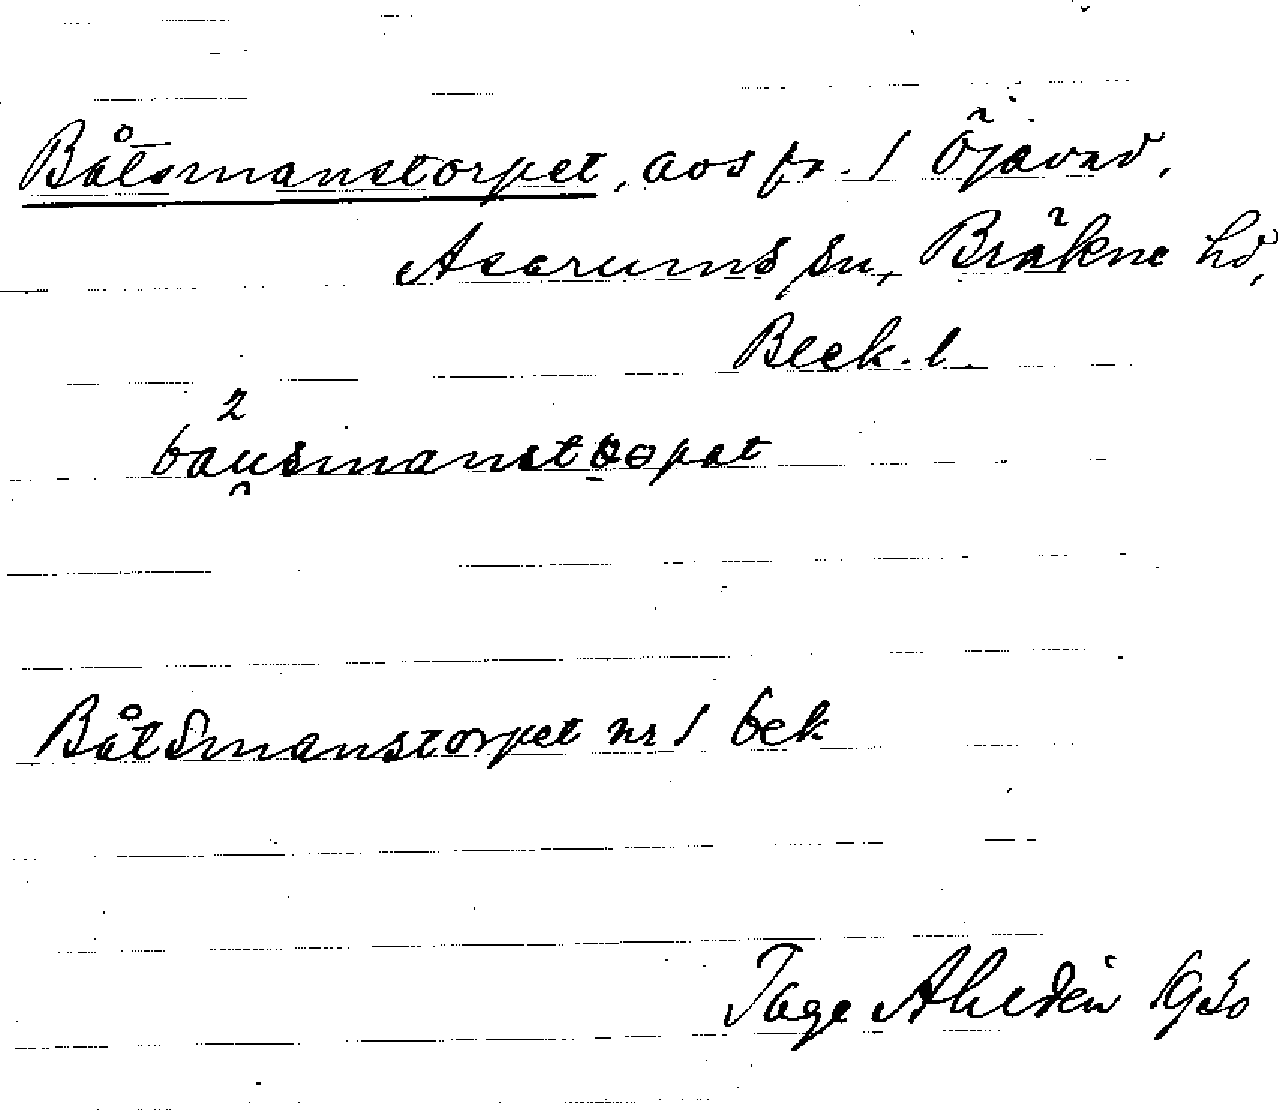 Båtsmanstorpet, avs fr. 1 Öjavad,
Asarums sn, Bräkne hd,
Blek. l.
2
båusmanstoopat
Båtsmanstorpet nr 1 bek
Tage Ahldén 1950